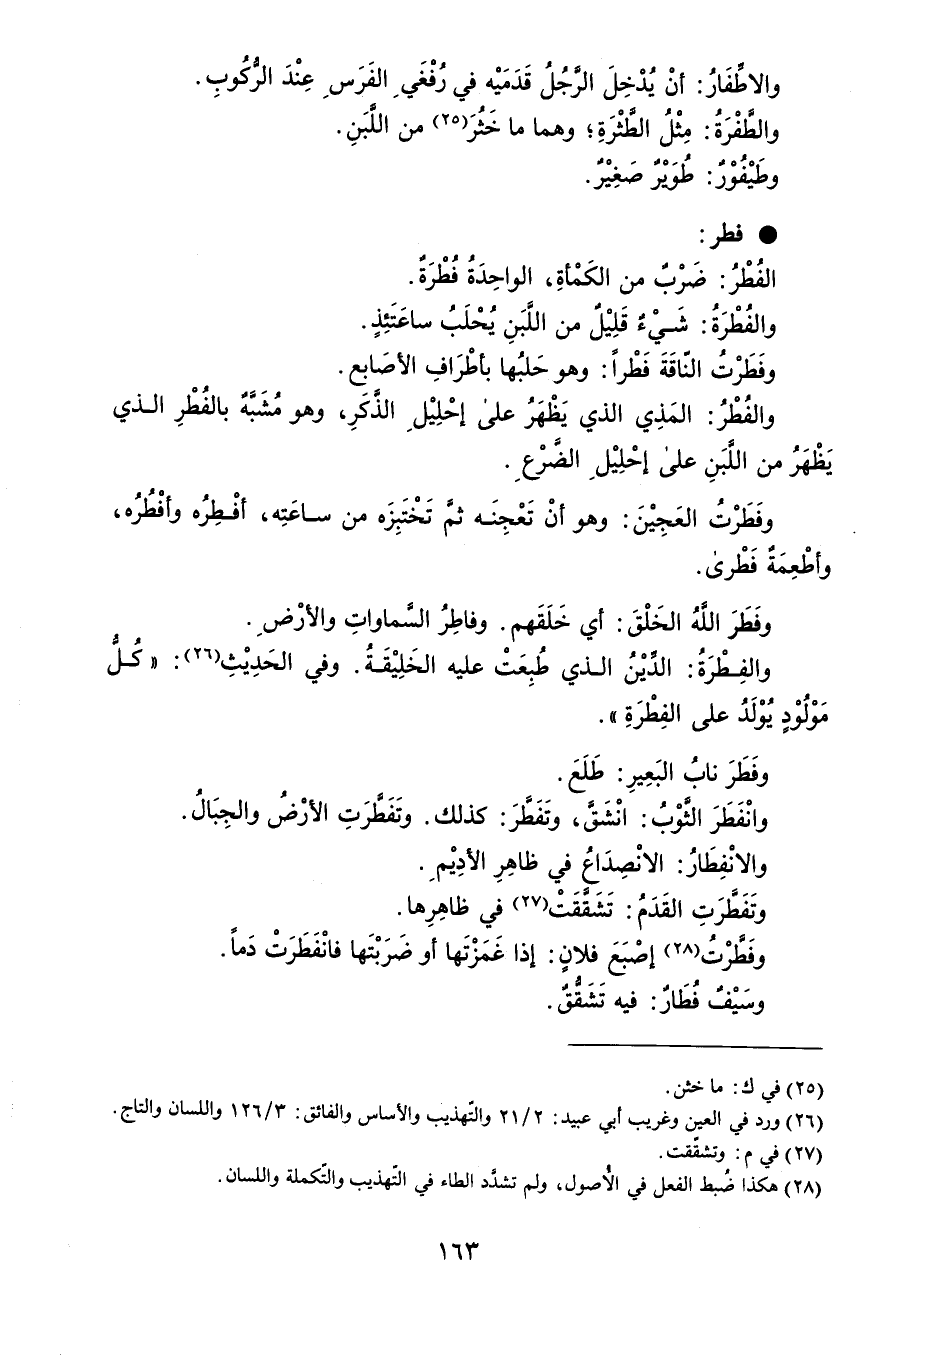 والاطِّفَارُ: أنْ يُدْخِلَ الرَّجُلُ قَدَمَيْه في رُفْغَيِ الفَرَسِ عِنْدَ الرُّكُوبِ.
والطَّفْرَةُ: مِثْلُ الطَّثْرَةِ؛ وهما ما خَثُرَ(٢٥) من اللَّبَنِ.
وطَيْفُوْرٌ: طُوَيْرٌ صَغِيْرٌ.
● فطر:
الفُطْرُ: ضَرْبٌ من الكَمْأةِ، الواحِدَةُ فُطْرَةٌ.
والفُطْرَةُ: شَيْءٌ قَلِيْلٌ من اللَّبَنِ يُحْلَبُ ساعَتَئِذٍ.
وفَطَرْتُ النّاقَةَ فَطْراً: وهو حَلبُها بأطْرَافِ الأصَابع.
والفُطْرُ: المَذِي الذي يَظْهَرُ علىٰ إحْلِيْلِ الذَّكَرِ، وهو مُشَبَّهٌ بالفُطْرِ الذي
يَظْهَرُ من اللَّبَنِ علىٰ إحْلِيْلِ الضَّرْعِ.
وفَطَرْتُ العَجِيْنَ: وهو أنْ تَعْجِنَه ثمَّ تَخْتَبِزَه من ساعَتِه، أفْطِرُه وأفْطُرُه،
وأطْعِمَةٌ فَطْرىٰ.
وفَطَرَ اللَّهُ الخَلْقَ: أي خَلَقَهم. وفاطِرُ السَّماواتِ والأرْضِ.
والفِطْرَةُ: الدِّيْنُ الذي طُبِعَتْ عليه الخَلِيْقَةُ. وفي الحَدِيْثِ(٢٦): «كُلُّ
مَوْلُوْدٍ يُوْلَدُ على الفِطْرَةِ».
وفَطَرَ نابُ البَعِيرِ: طَلَعَ.
وانْفَطَرَ الثَّوْبُ: انْشَقَّ، وتَفَطَّرَ: كذلك. وتَفَطَّرَتِ الأرْضُ والجِبَالُ.
والانْفِطَارُ: الانْصِدَاعُ في ظاهِرِ الأدِيْمِ.
وتَفَطَّرَتِ القَدَمُ: تَشَقَّقَتْ(٢٧) في ظاهِرِها.
وفَطَّرْتُ(٢٨) إصْبَعَ فلانٍ: إذا غَمَزْتَها أو ضَرَبْتَها فانْفَطَرَتْ دَماً.
وسَيْفٌ فُطَارٌ: فيه تَشَقُّقٌ.
(٢٥) في ك: ما خثن.
(٢٦) ورد في العين وغريب أبي عبيد: ٢١/٢ والتّهذيب والأساس والفائق: ١٢٦/٣ واللسان والتاج.
(٢٧) في م: وتشقّقت.
(٢٨) هكذا ضُبط الفعل في الأُصول، ولم تشدَّد الطاء في التّهذيب والتّكملة واللسان.
١٦٣